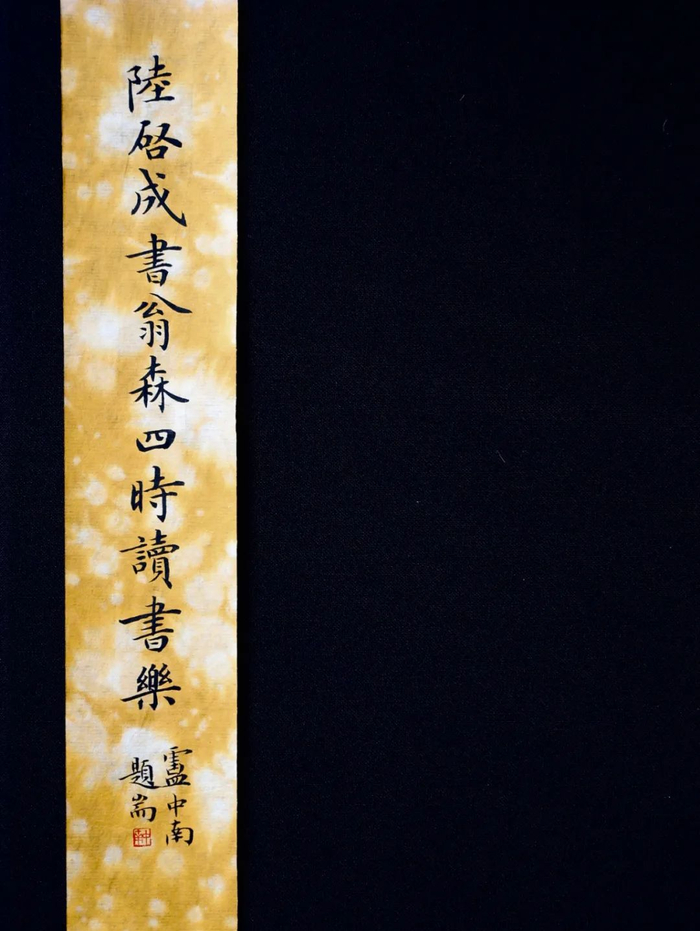 陸啓成書翁森四時讀書樂
盧中南
題耑